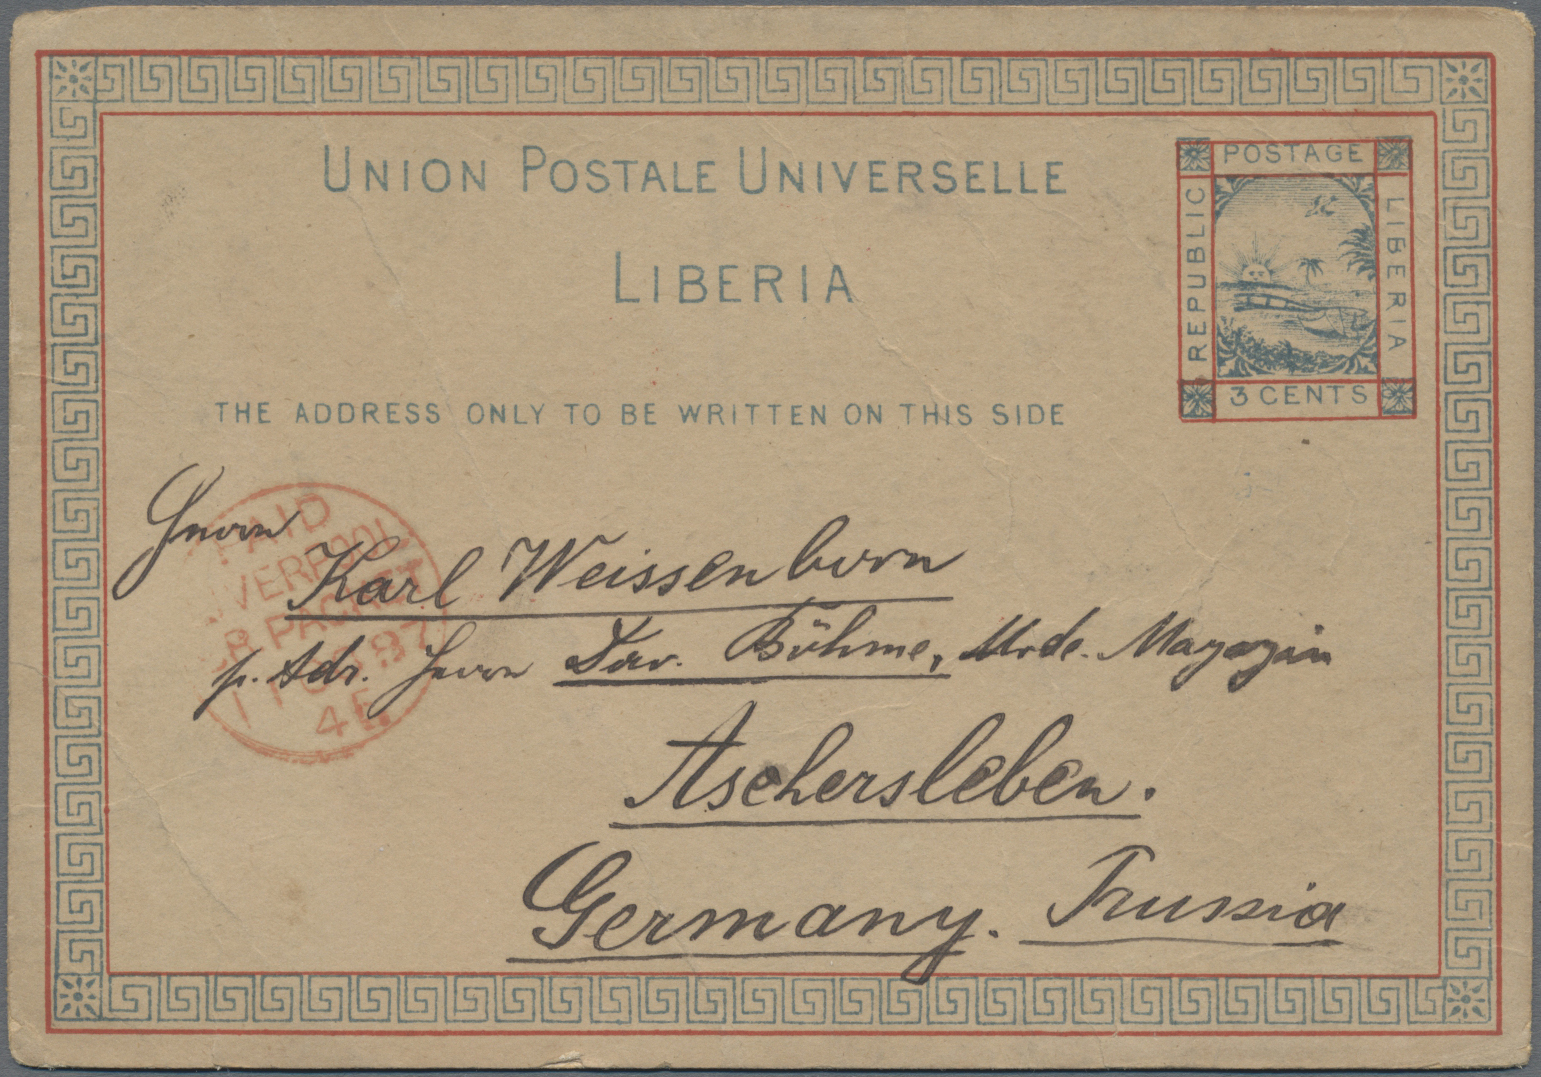 UNION POSTALE UNIVERSELLE
LIBERIA
THE ADDRESS ONLY TO BE WRITTEN ON THIS SIDE
POSTAGE
REPUBLIC
LIBERIA
3 CENTS
PAID
LIVERPOOL
BR PACKET
87
4E
Herrn
Karl Weissenborn
p. Adr. Herrn Dav. Böhme, Mode-Magazin
Aschersleben.
Germany. Prussia